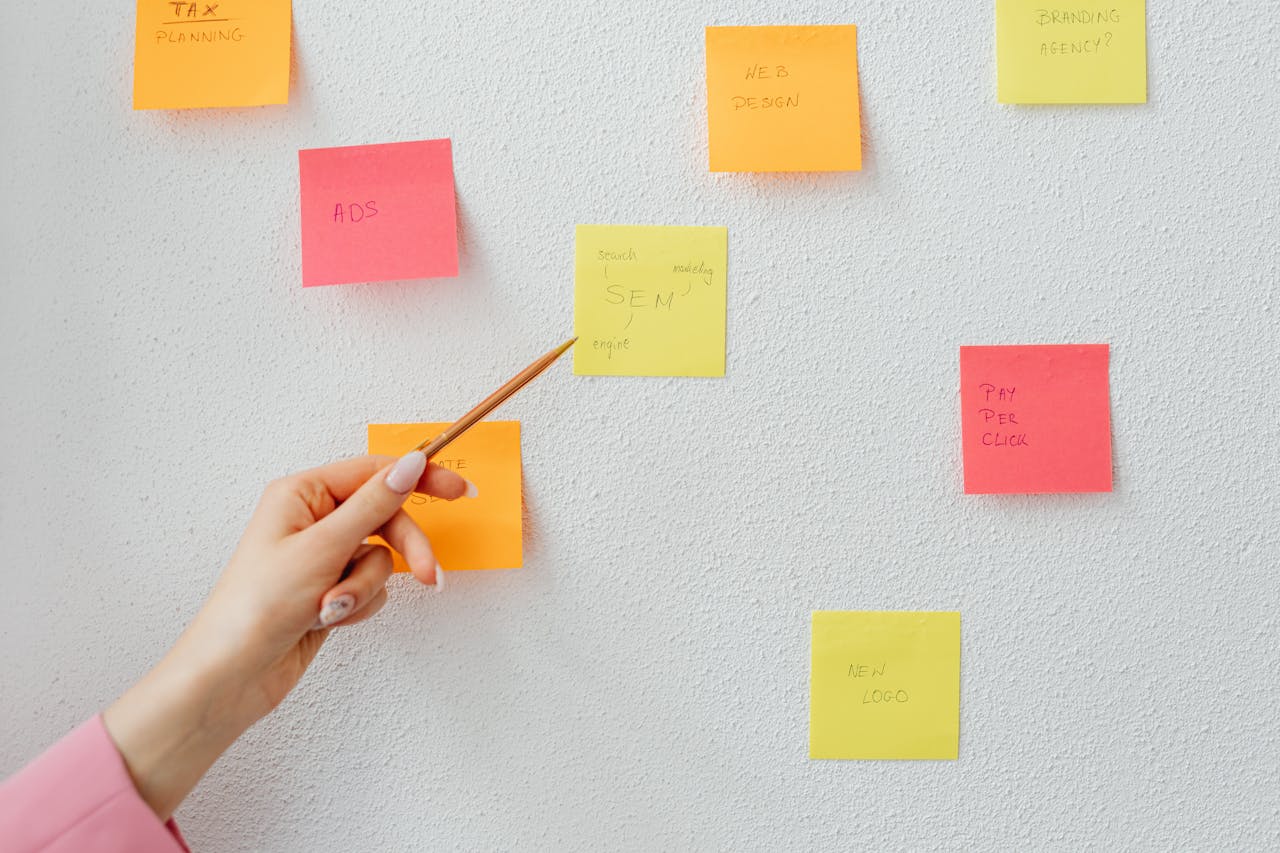 TAX
PLANNING
WEB
DESIGN
BRANDING
AGENCY?
ADS
search
marketing
SEM
engine
PAY
PER
CLICK
NEW
LOGO